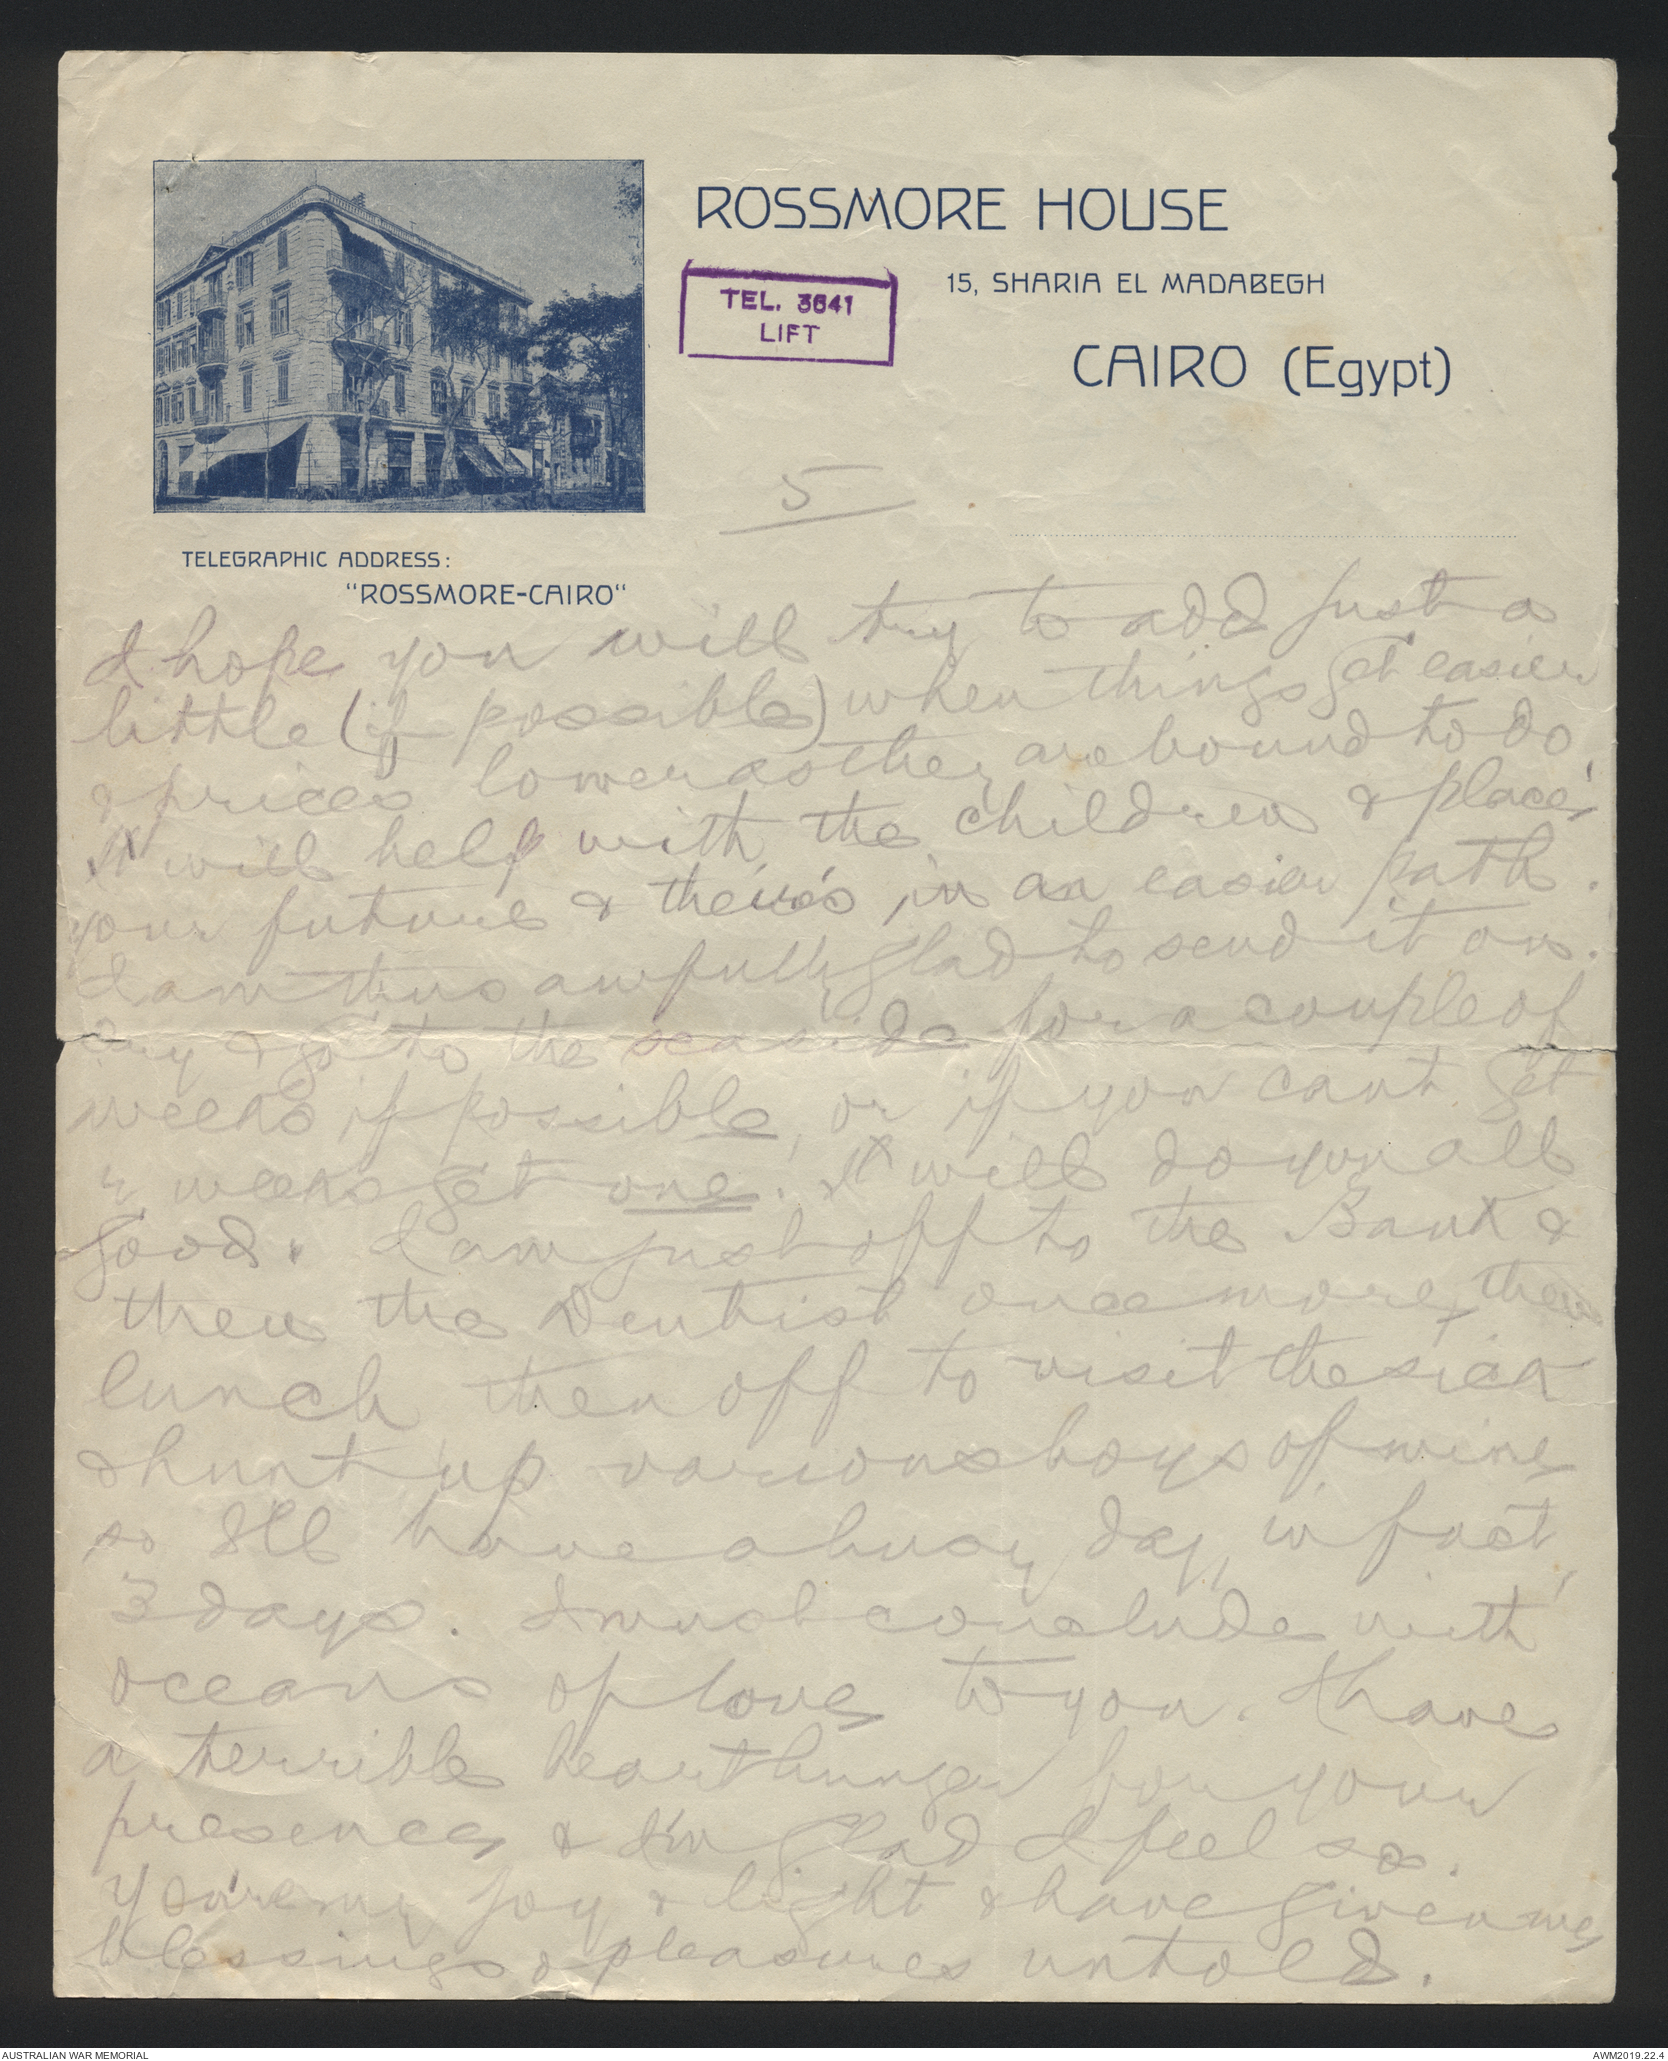 ROSSMORE HOUSE
TEL. 3641
LIFT
15, SHARIA EL MADABEGH
CAIRO (Egypt)
5
TELEGRAPHIC ADDRESS:
"ROSSMORE-CAIRO"
I hope you will try to add just a
little (if possible) when things get easier
& prices lower as they are bound to do,
It will help with the children & place
your future & theirs in an easier path.
I am thus awfully glad to send it on.
Try & go to the seaside for a couple of
weeks if possible, or if you cant get
2 weeks get one. It will do you all
good. I am just off to the Bank &
then the Dentist once more, then
lunch then off to visit the sick
& hunt up various boys of mine
so I'll have a busy day, in fact,
3 days. I must conclude with
oceans of love to you. I have
a terrible heart hunger for your
presence & I'm glad I feel so.
You're my joy & light & have given me
blessings & pleasures untold.
AUSTRALIAN WAR MEMORIAL
AWM2019.22.4